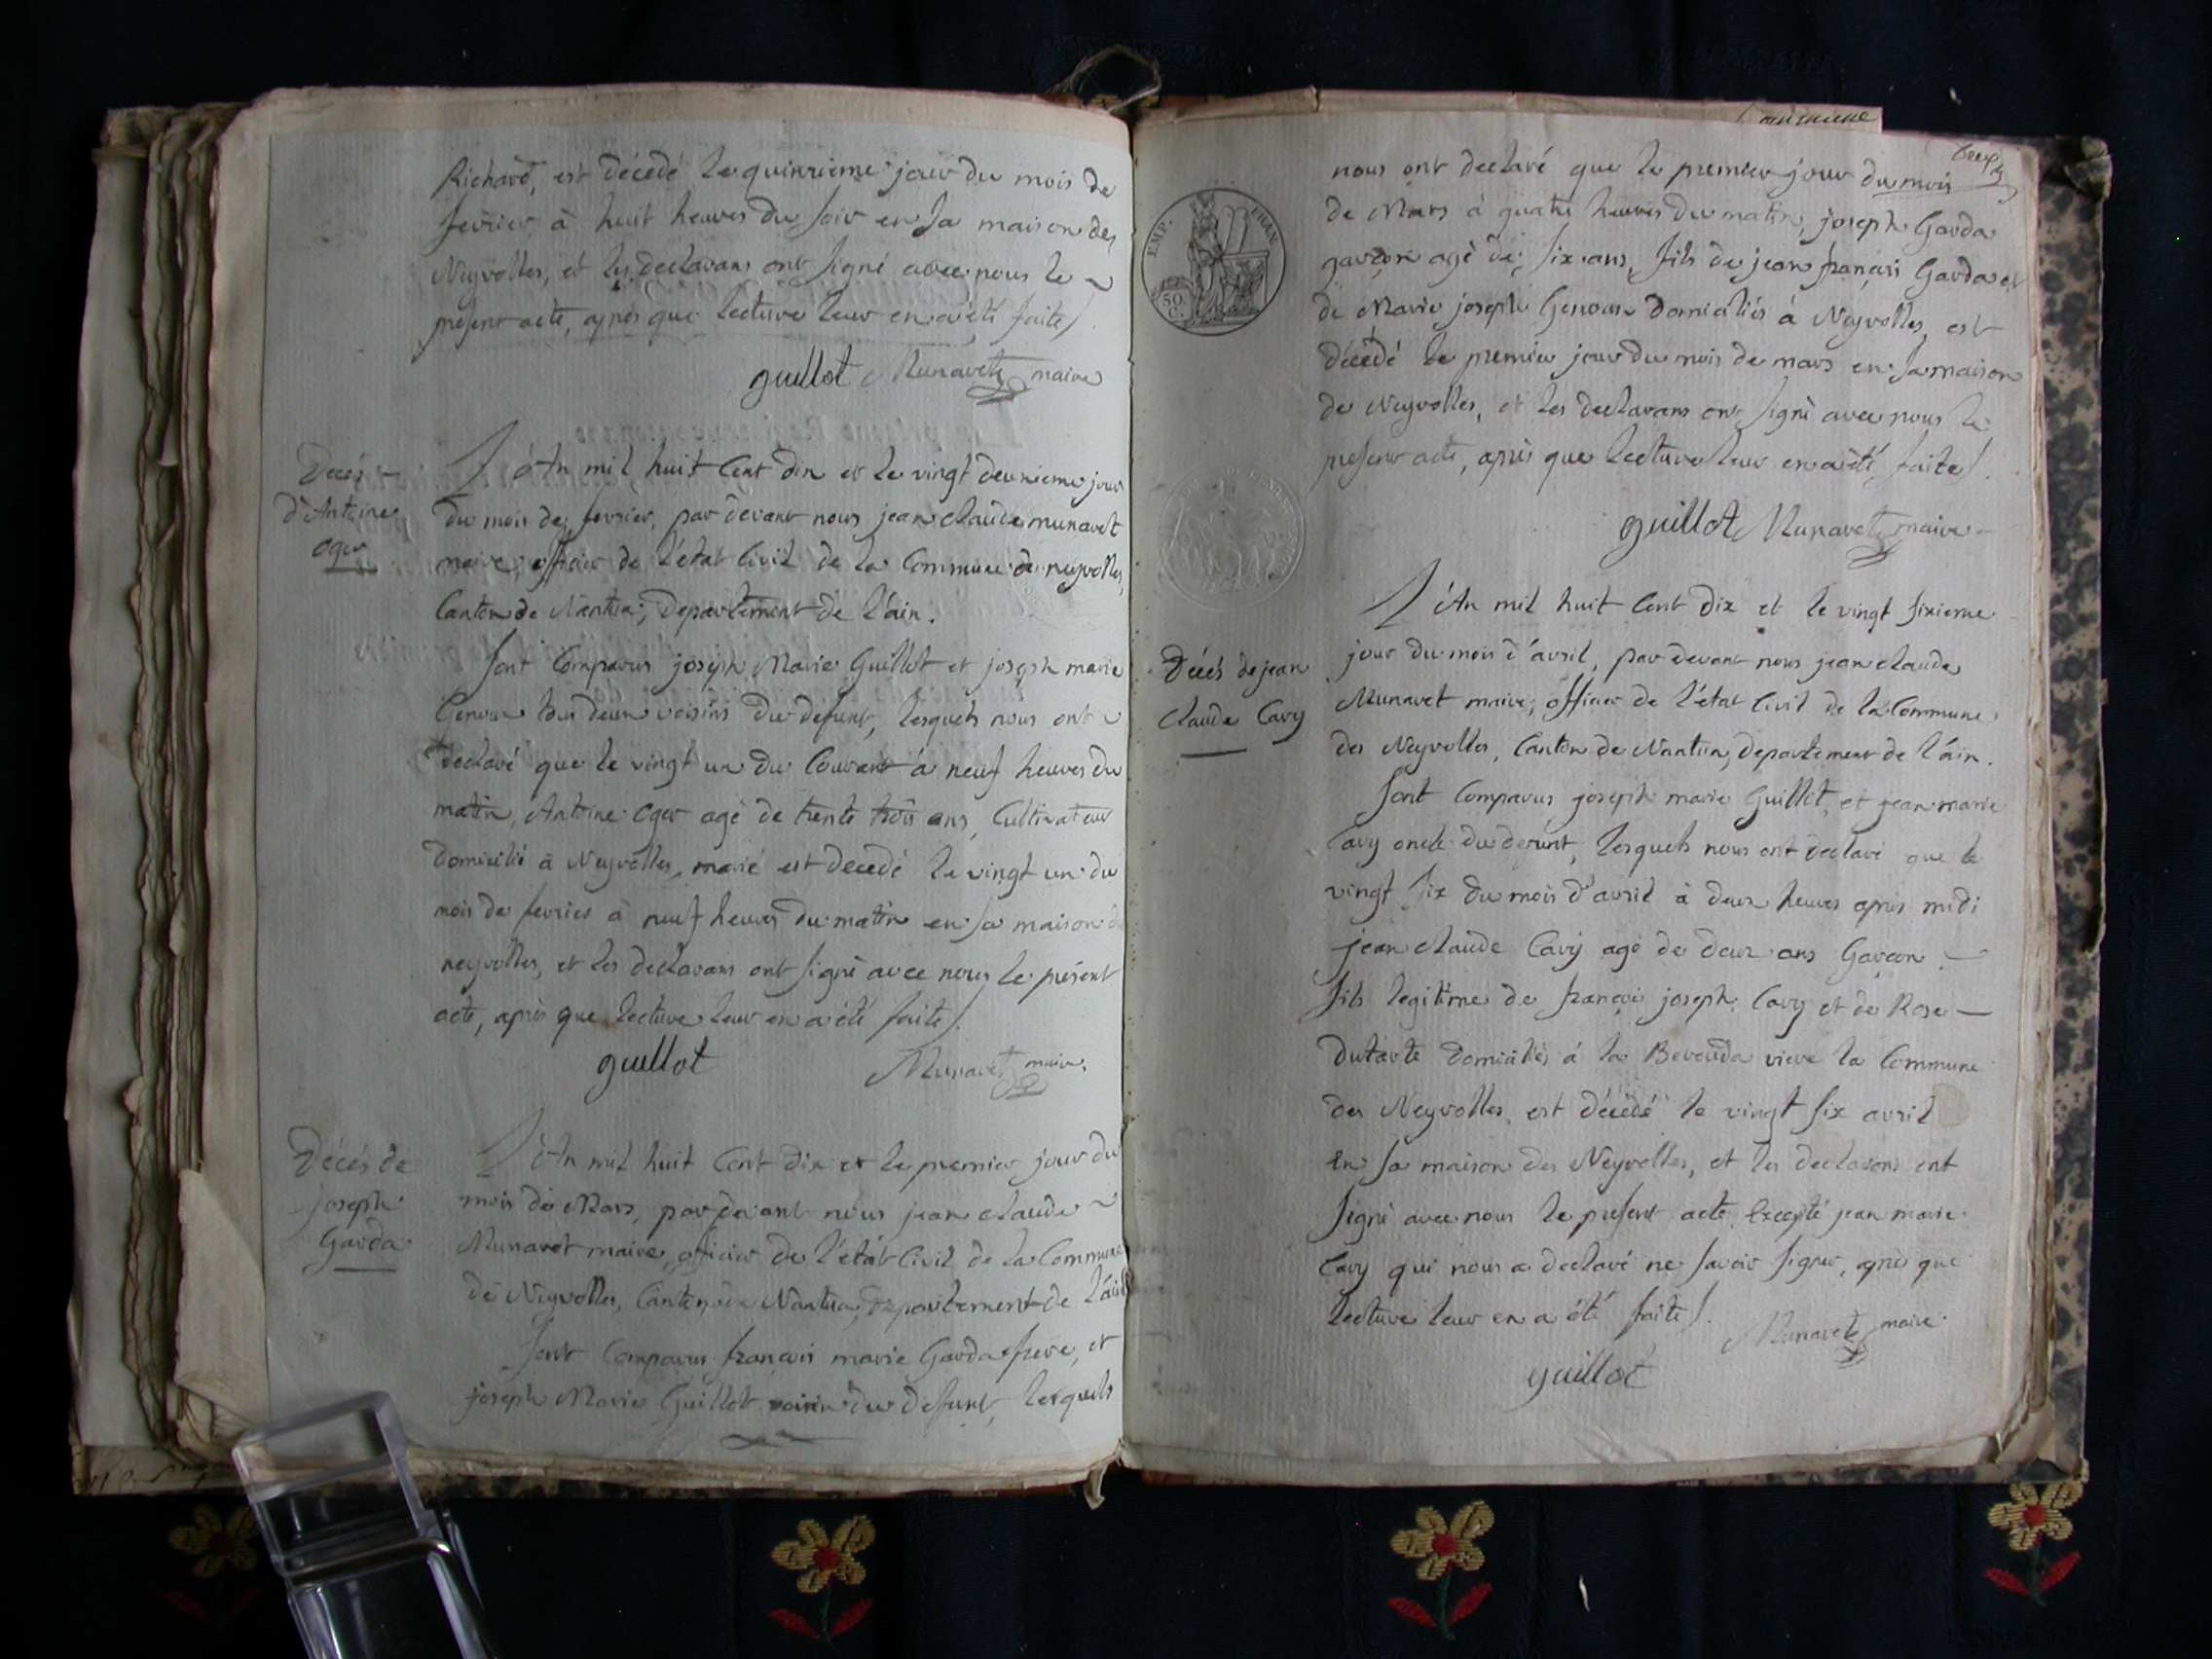 Richard, est décedé le quinzieme jour du mois de
fevrier à huit heures du soir en sa maison des
Neyrolles, et les declarans ont signé avec nous le
present acte, apres que lecture leur en a été faite.
guillot Munavet maire
Decès
d'Antoine
oger
L'An mil huit Cent dix et le vingt deuxieme jour
du mois de fevrier, par devant nous jean claude munavet
maire, officier de l'état Civil de la Commune de neyrolles,
Canton de Nantua, Departement de l'ain.
Sont Comparus joseph Marie Guillot et joseph marie
Genoux tous deux voisins du defunt, lesquels nous ont
declaré que le vingt un du Courant à neuf heures du
matin, Antoine oger agé de trente trois ans, Cultivateur
Domicilié à Neyrolles, marié est decedé le vingt un du
mois de fevrier à neuf heures du matin en sa maison de
neyrolles, et les declarans ont signé avec nous le présent
acte, après que lecture leur en a été faite.
guillot Munavet maire
Décès de
joseph
Garda
L'An mil huit Cent dix et le premier jour du
mois de Mars, par devant nous jean claude
Munavet maire, officier de l'état Civil de la Commune
de Neyrolles, Canton de Nantua, Departement de l'ain
Sont Comparus françois marie Garda frere, et
joseph Marie Guillot voisin du defunt, lesquels
EMP. FRAN.
50
C.
nous ont declaré que le premier jour du mois
de Mars à quatre heures du matin, joseph Garda
garçon agé de six ans, fils de jean françois Garda et
de Marie joseph Genoux Domiciliés à Neyrolles, est
décédé le premier jour du mois de mars en sa maison
de Neyrolles, et les declarans ont signé avec nous le
present acte, après que lecture leur en a été faite.
guillot Munavet maire
Décès de jean
claude Cavy
L'An mil huit Cent dix et le vingt sixieme
jour du mois d'avril, par devant nous jean claude
Munavet maire, officier de l'état Civil de la Commune
des Neyrolles, Canton de Nantua, Departement de l'ain.
Sont Comparus joseph marie Guillot, et jean marie
Cavy oncle du defunt, lesquels nous ont declaré que le
vingt six du mois d'avril à deux heures après midi
jean claude Cavy agé de deux ans Garçon
fils legitime de françois joseph Cavy et de Rose
Dutarte domiciliés à la viere la Commune
des Neyrolles, est décédé le vingt six avril
en sa maison des Neyrolles, et les declarans ont
signé avec nous le present acte, Excepté jean marie
Cavy qui nous a declaré ne savoir signer, après que
lecture leur en a été faite.
Munavet maire
guillot